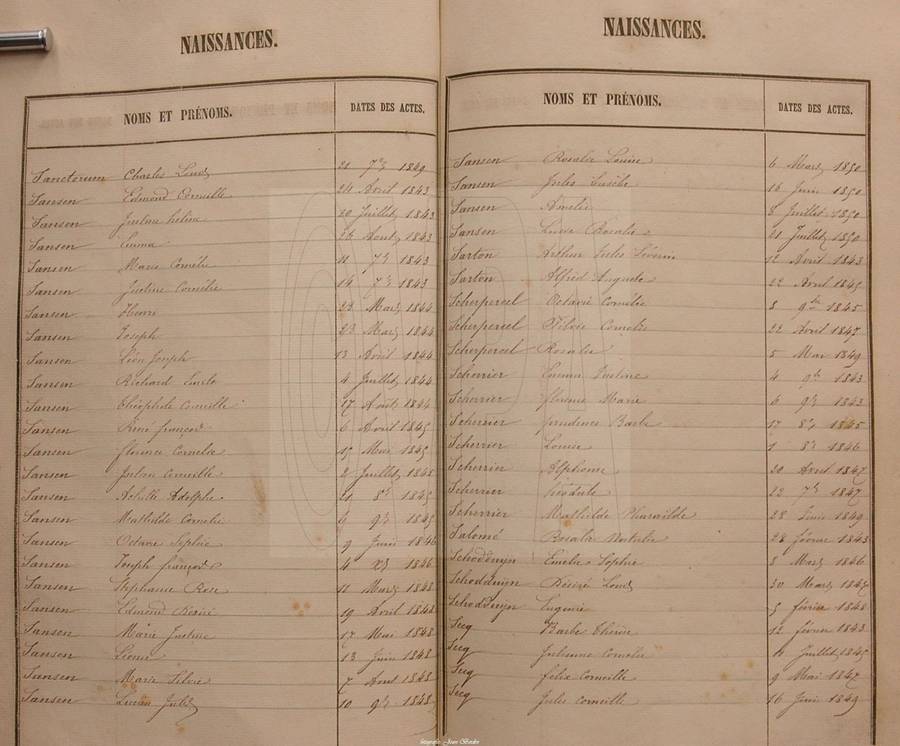 NAISSANCES.
NOMS ET PRÉNOMS. DATES DES ACTES.
Sanctorum Charles Louis 21 7bre 1849
Sansen Edmond Corneille 24 Avril 1843
Sansen Justine 20 Juillet 1843
Sansen Emma 26 Aout 1843
Sansen Marie Cornélie 11 7b 1843
Sansen Justine Cornélie 14 7b 1843
Sansen Henri 23 Mars 1844
Sansen Joseph 23 Mars 1844
Sansen Léon Joseph 13 Avril 1844
Sansen Richard Emile 4 Juillet 1844
Sansen Théophile Corneille 17 Août 1844
Sansen René françois 6 Avril 1845
Sansen florence Cornélie 15 1845
Sansen Corneille 2 Juillet 1845
Sansen Achille Adolphe 21 8b 1845
Sansen Mathilde Cornélie 6 9b 1845
Sansen Octavie Sophie 9 Juin 1846
Sansen Joseph françois 4 1846
Sansen Stéphanie Rose 11 Mars 1848
Sansen Edmond Désiré 19 Avril 1848
Sansen Marie Justine 17 Mai 1848
Sansen 13 Juin 1848
Sansen Marie Silvie 7 Aout 1848
Sansen Jules 10 9b 1848
NAISSANCES.
NOMS ET PRÉNOMS. DATES DES ACTES.
Sansen Rosalie Louise 6 Mars 1850
Sansen Jules Eusèbe 16 Juin 1850
Sansen Amélie 8 Juillet 1850
Sansen Rosalie 21 Juillet 1850
Sarton Arthur Jules Séverin 12 Avril 1843
Sarton Alfred Auguste 22 Avril 1845
Scherpereel Octavie Cornélie 8 9bre 1845
Scherpereel Silvie Cornélie 22 Avril 1847
Scherpereel Rosalie 5 Mai 1849
Scherrier Emma Justine 4 9b 1843
Scherrier florence Marie 6 9b 1843
Scherrier prudence Barbe 17 8b 1845
Scherrier Louise 1 8b 1846
Scherrier Alphonse 20 Avril 1847
Scherrier 22 7b 1847
Scherrier Mathilde Pharaïlde 28 Juin 1849
Salomé Rosalie Nathalie 28 février 1843
Schodduyn Emélie Sophie 8 Mars 1846
Schodduyn Désiré Louis 30 Mars
Schodduyn Eugenie 5 février 1848
Secq Barbe 12 février 1843
Secq Julienne Cornélie 11 Juillet 1845
Secq félix Corneille 9 Mai 1847
Secq Jules Corneille 16 Juin 1849